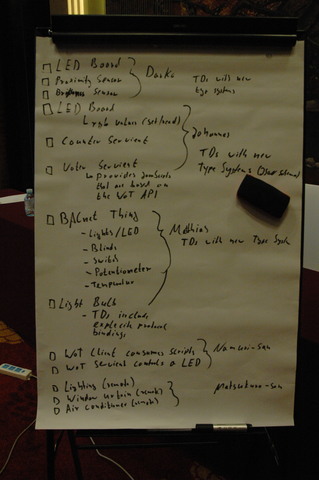 LED Board
Proximity Sensor
Sensor
Daska
TDs with new
type systems
LED Board
rgb values (set/read)
Counter Servient
Johannes
TDs with new
Type Systems
Voter Servient
provides
that are based on
the WoT API
BACnet Thing
- Lights/LED
- Blinds
- Switch
- Potentiometer
- Temperatur
Matthias
TDs with new Type System
Light Bulb
- TDs include
explicite protocol
bindings
WoT Client consumes scripts
WoT Servient controls a LED
-San
Lighting (remote)
Window curtain (remote)
Air conditioner (remote)
Matsukura-san